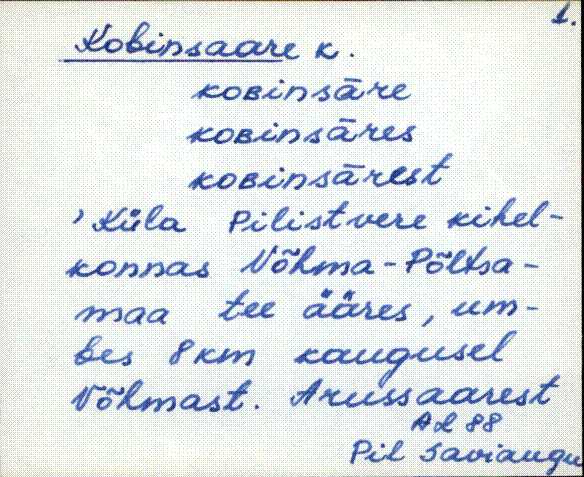 1.
Kobinsaare k.
koʙinsāre
koʙinsāres
koʙinsārest
, Küla Pilistvere kihel-
konnas Võhma-Põltsa-
maa tee ääres, um-
bes 8 km kaugusel
Võhmast. Arussaarest
AL 88
Pil Saviaugu